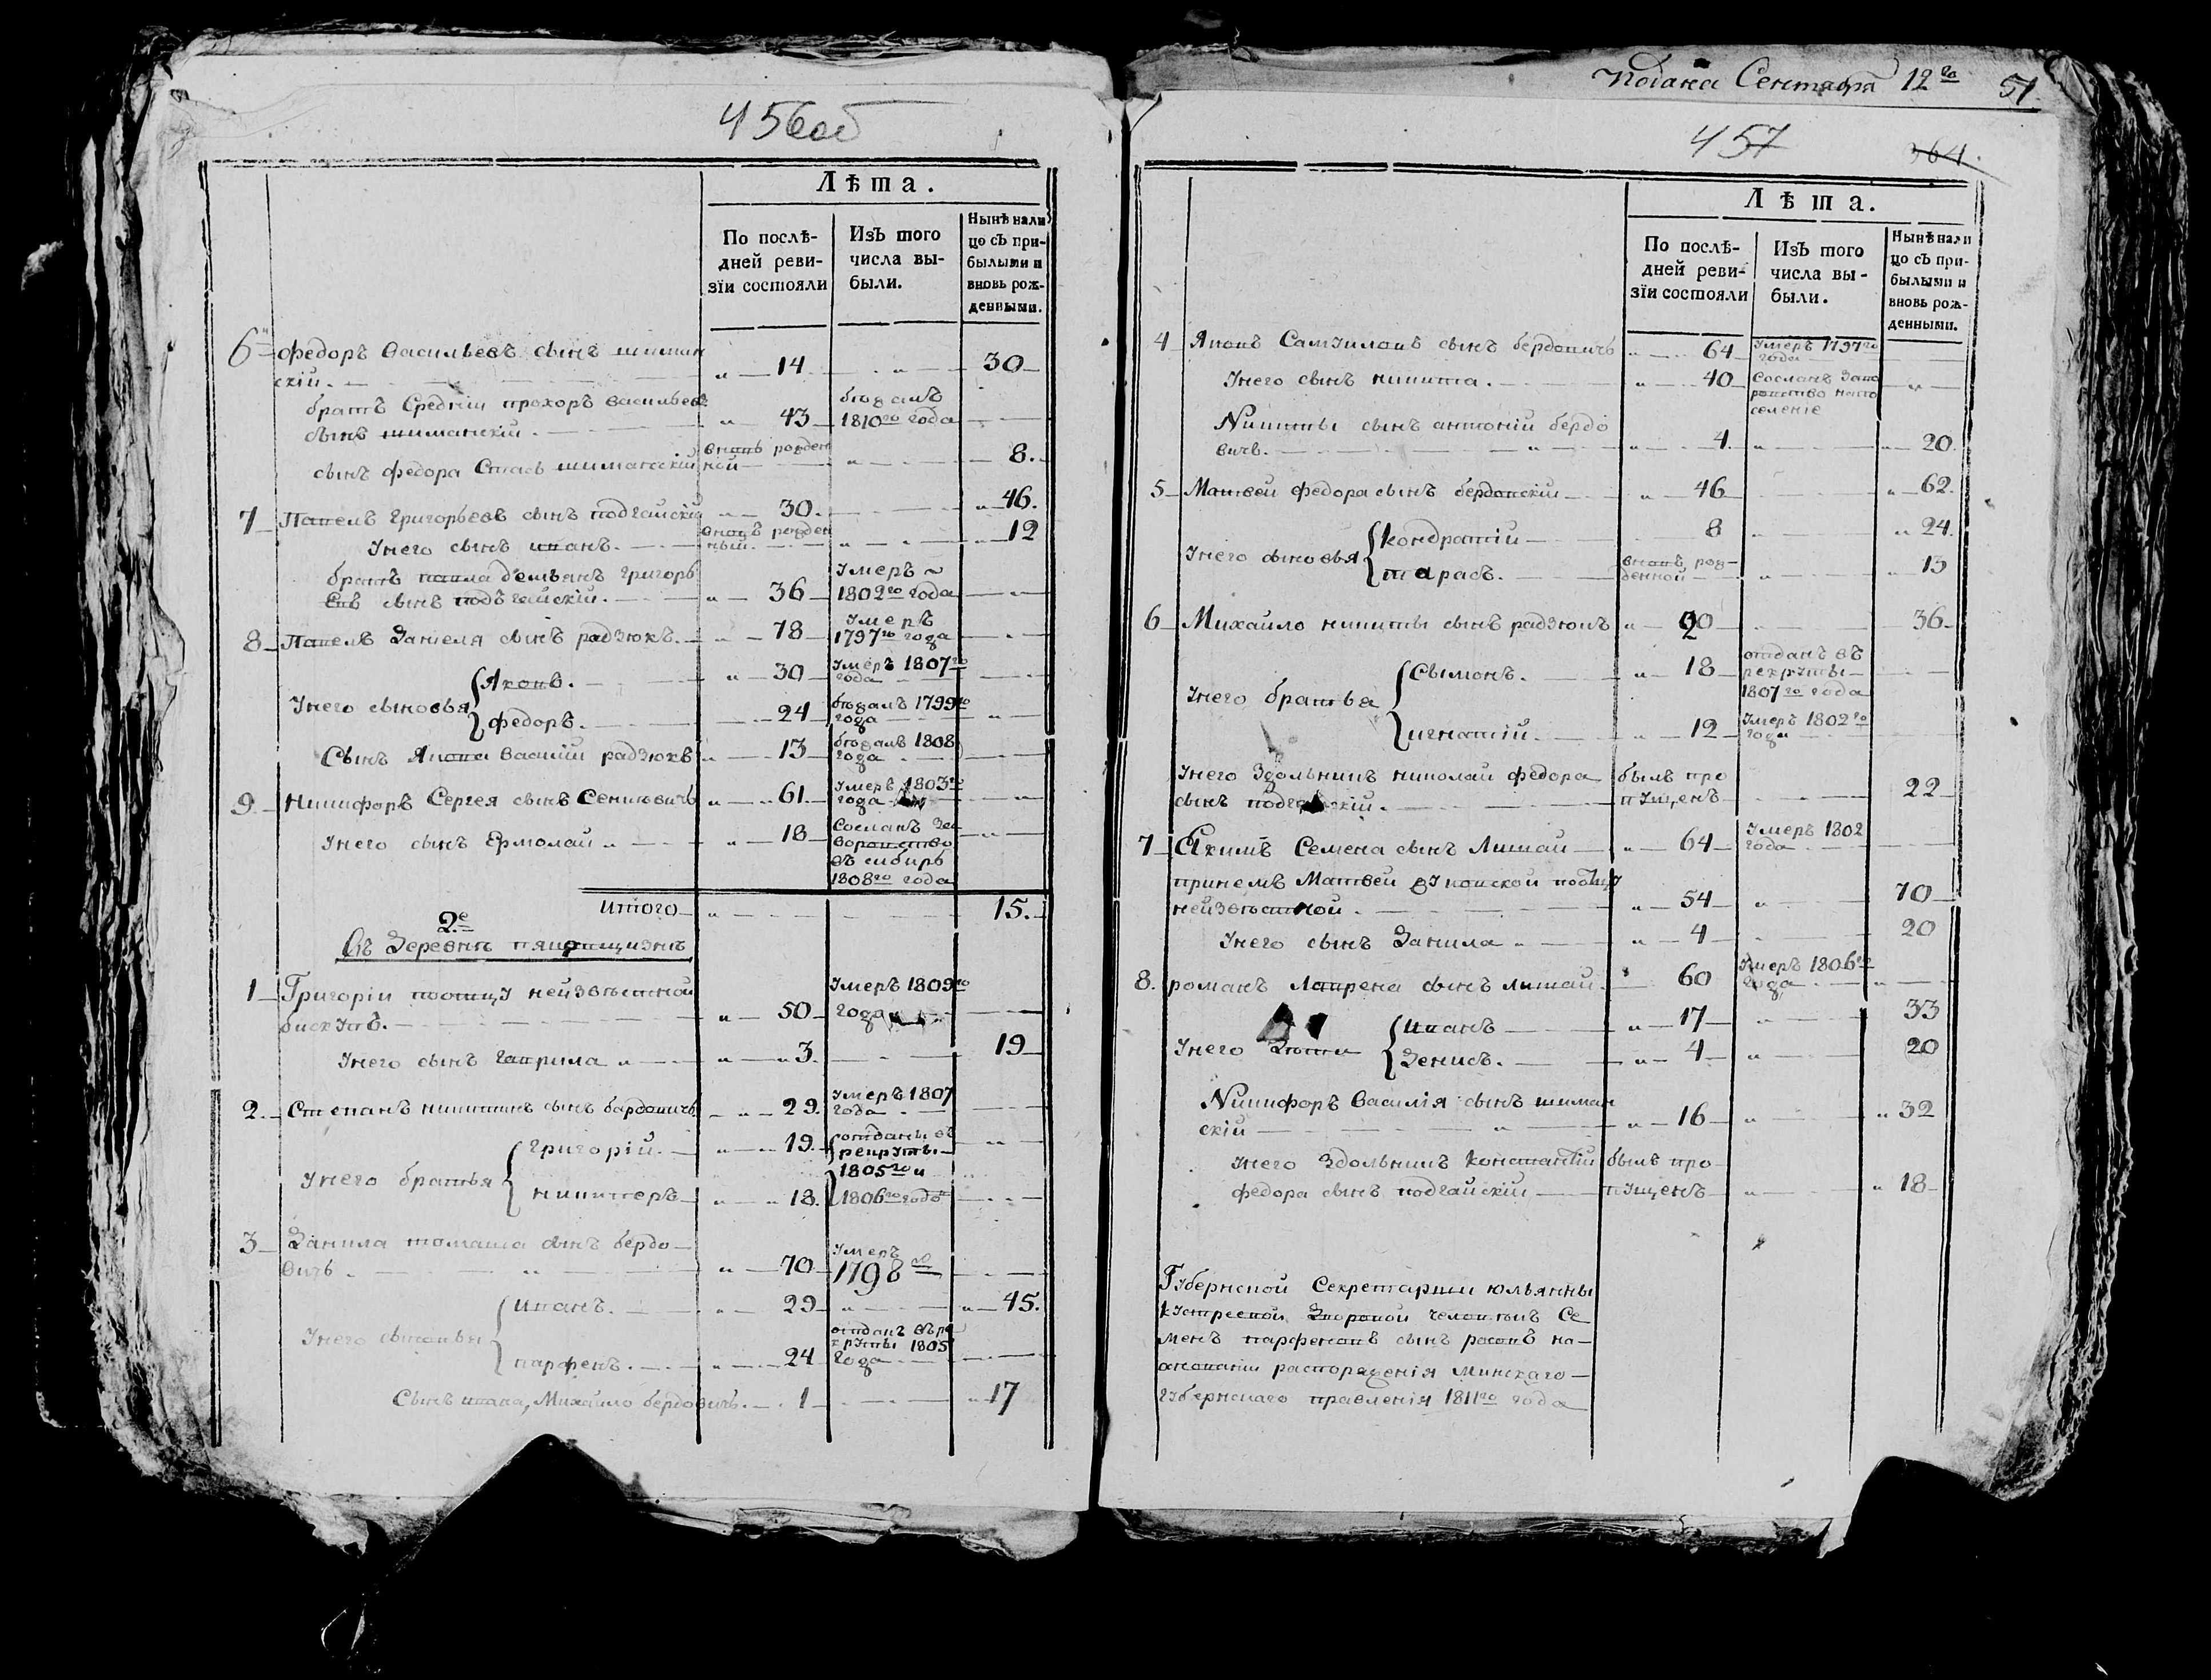 456об
Лѣта.
По послѣ-
дней реви-
зїи состояли
Изъ того
числа вы-
были.
Нынѣ нали
цо съ при-
былыми и
вновь рож-
денными.
6 федоръ васильевъ сынъ шиман
скій. 14 30
братъ Средній прохоръ васильевъ бѣжалъ
сынъ шиманскій 43 1810го года
вновь рожден
сынъ федора Стасъ шиманскій ной 8.
7 Павелъ григорьевъ сынъ подгайскій 30. 46.
вновь рожден
Унего сынъ иванъ. ный. 12
братъ павла демьянъ григорь Умеръ
евъ сынъ подъгайскій. 36 1802го года
8 Павелъ Данієля сынъ радзюкъ. 78 Умеръ
1797го года
Унего сыновья Яковъ. 30 Умеръ 1807го
года
федоръ. 24 бѣжалъ 1799го
года
Сынъ Якова василій радзюкъ 13 бѣжалъ 1808
года
9 Никифоръ Сергея сынъ Сенкевичъ 61 Умеръ 1803го
года
Унего сынъ Ермолай 18 Сосланъ За
воровство
въ сибирь
1808го года
итого 15.
2е
Въ Деревнѣ
1 Григорій поотцу неизвѣстной Умеръ 1809го
бискупъ. 50 года
Унего сынъ гаврила 3. 19
2. Степанъ никитинъ сынъ бардовичъ 29. Умеръ 1807
года
Унего братья григорій. 19. отданы въ
рекруты.
1805го и
никиперъ 18. 1806го годовъ
3 Данила томаша сынъ бердо Умеръ
вичъ. 70 1798
Унего сыновьи иванъ. 29 45.
парфенъ. 24 отданъ въ ре
круты 1805
года
Сынъ ивана, Михайло бердовичъ. 1 17
Подана Сентября 12го 51.
457
364.
Лѣта.
По послѣ-
дней реви-
зїи состояли
Изъ того
числа вы-
были.
Нынѣ нали
цо съ при-
былыми и
вновь рож-
денными.
4 Яковъ Самуиловъ сынъ бердовичъ 64 Умеръ 1797го
года
Унего сынъ никита. 40 Сосланъ Заво
ровство напо
селеніе
Никиты сынъ антоній бердо
вичъ. 4. 20.
5 Матвей федора сынъ бердовскій 46 62.
Унего сыновья кондратій 8 24.
тарасъ. вновь рож-
денной 13
6 Михайло никиты сынъ радзюкъ 20 36
Унего братья Сымонъ. 18 отданъ въ
рекруты
1807го года
игнатій 12 Умеръ 1802го
года
Унего Здольникъ николай федора былъ про
сынъ подгайскій. пущенъ 22
7 Якимъ Семена сынъ Литай 64 Умеръ 1802
года
принемъ Матвей поотцу
неизвѣстной. 54 70
Унего сынъ Данила 4 20
8. романъ Лаврена сынъ литай. 60 Умеръ 1806го
года
Унего Дѣти иванъ 17 33
Денисъ. 4 20
Никифоръ василія сынъ шиман
скій 16 32
Унего Здольникъ константій былъ про
федора сынъ подгайскій пущенъ 18
Губернской Секретарши юльянны
Дворовой человѣкъ Се
менъ парфеновъ сынъ на
основаніи распоряженія Минскаго
губернскаго правленія 1811го года